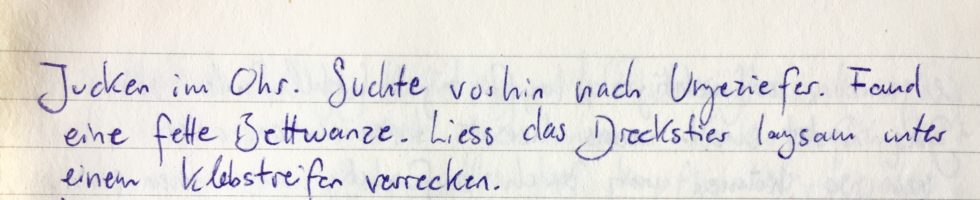 Jucken im Ohr. Suchte vorhin nach Ungeziefer. Fand
eine fette Bettwanze. Liess das Dreckstier langsam unter
einem Klebstreifen verrecken.